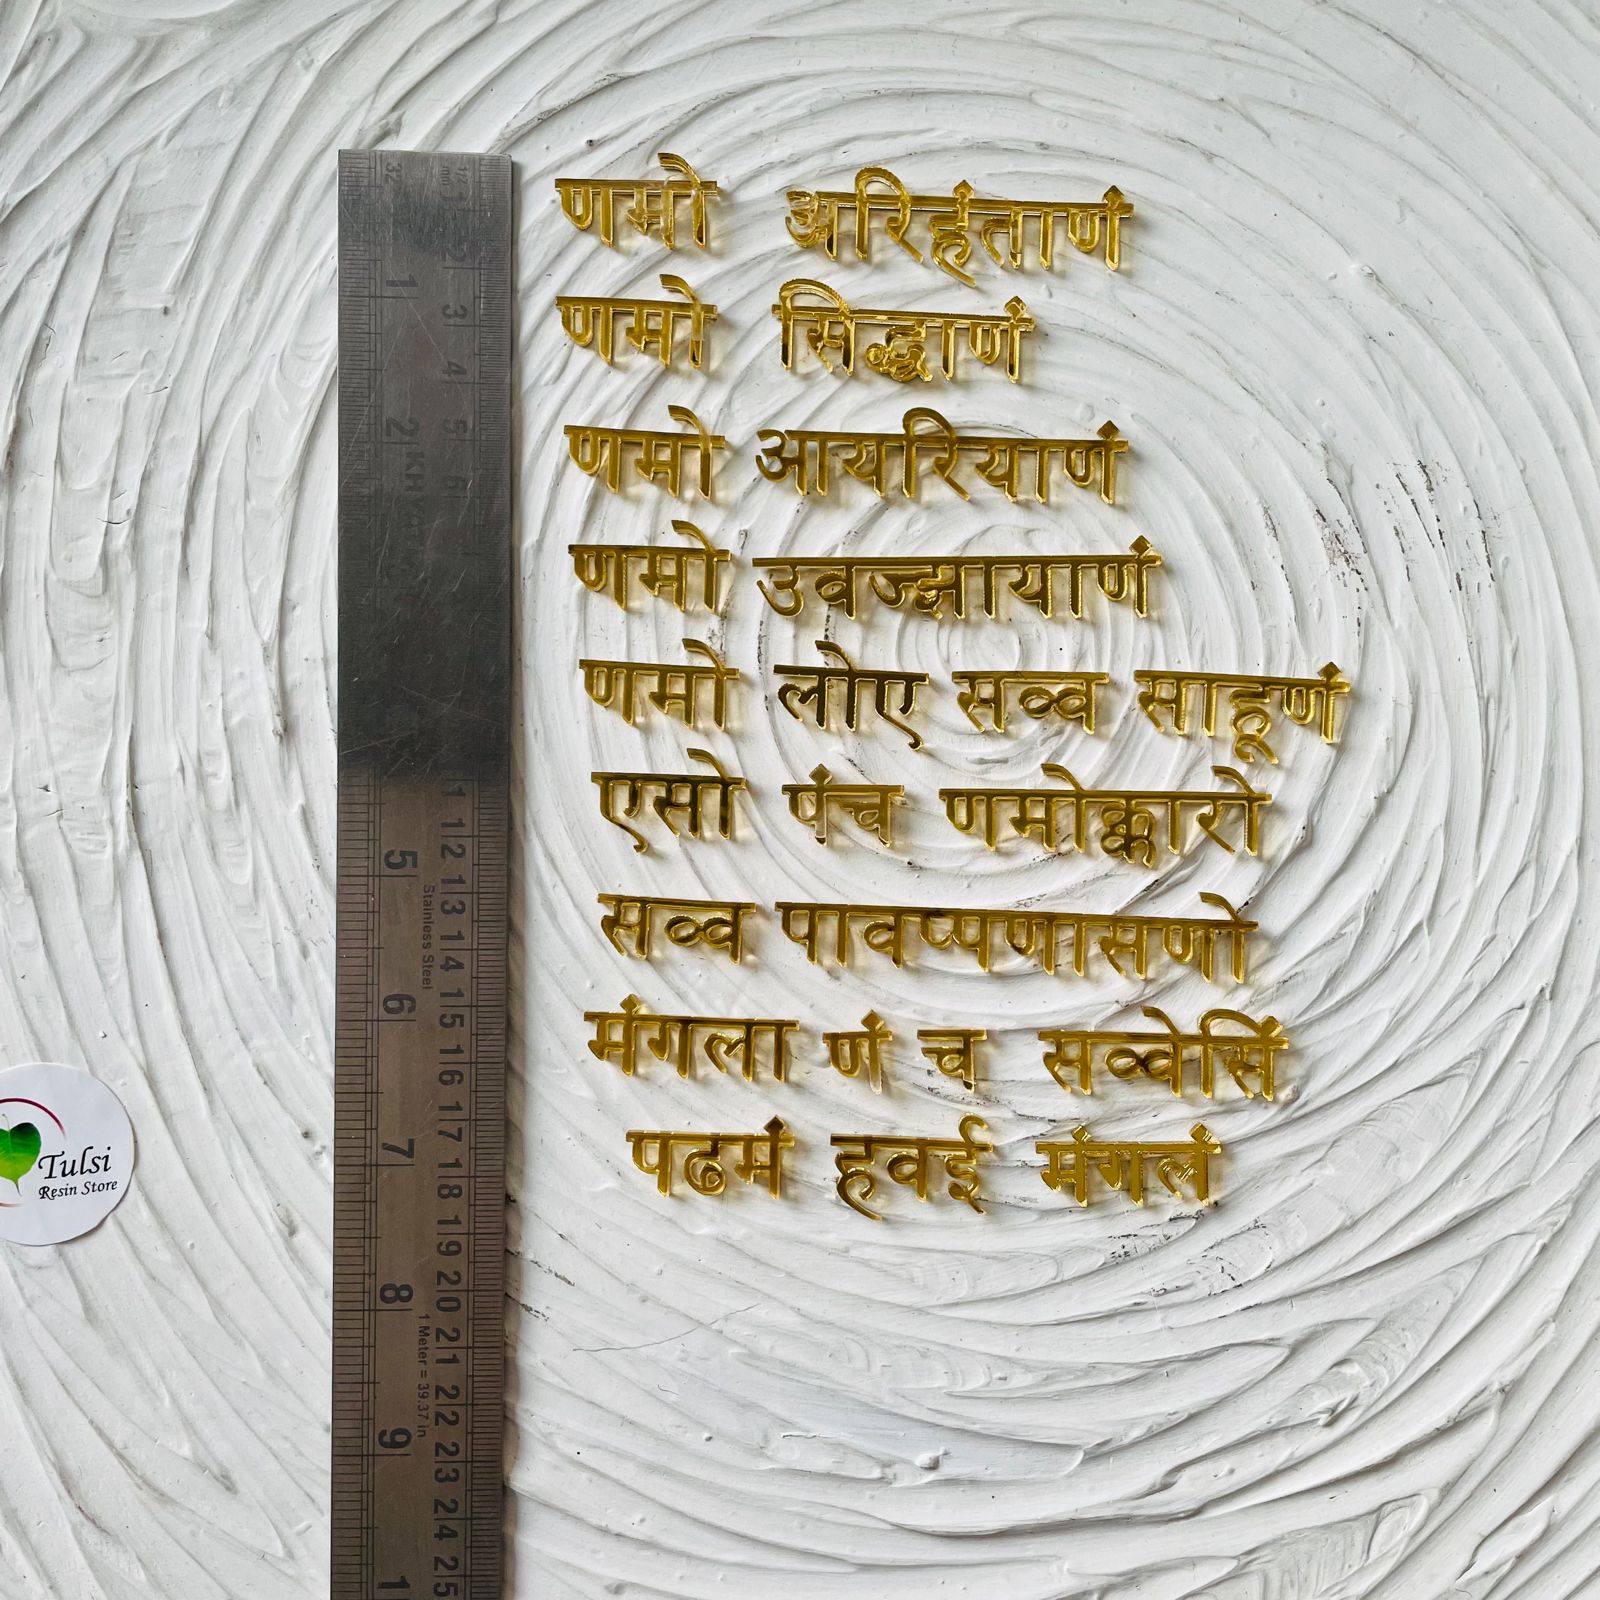 णमो अरिहंताणं
णमो सिद्धाणं
णमो आयरियाणं
णमो उवज्झायाणं
णमो लोए सव्व साहूणं
एसो पंच णमोक्कारो
सव्व पावप्पणासणो
मंगला णं च सव्वेसिं
पढमं हवई मंगलं
Tulsi
Resin Store
32
1/2 mm
1 2 3 4 5 6
1 2
12 13 14 15 16 17 18 19 20 21 22 23 24 25
5 6 7 8 9
Stainless Steel
1 Meter = 39.37 in